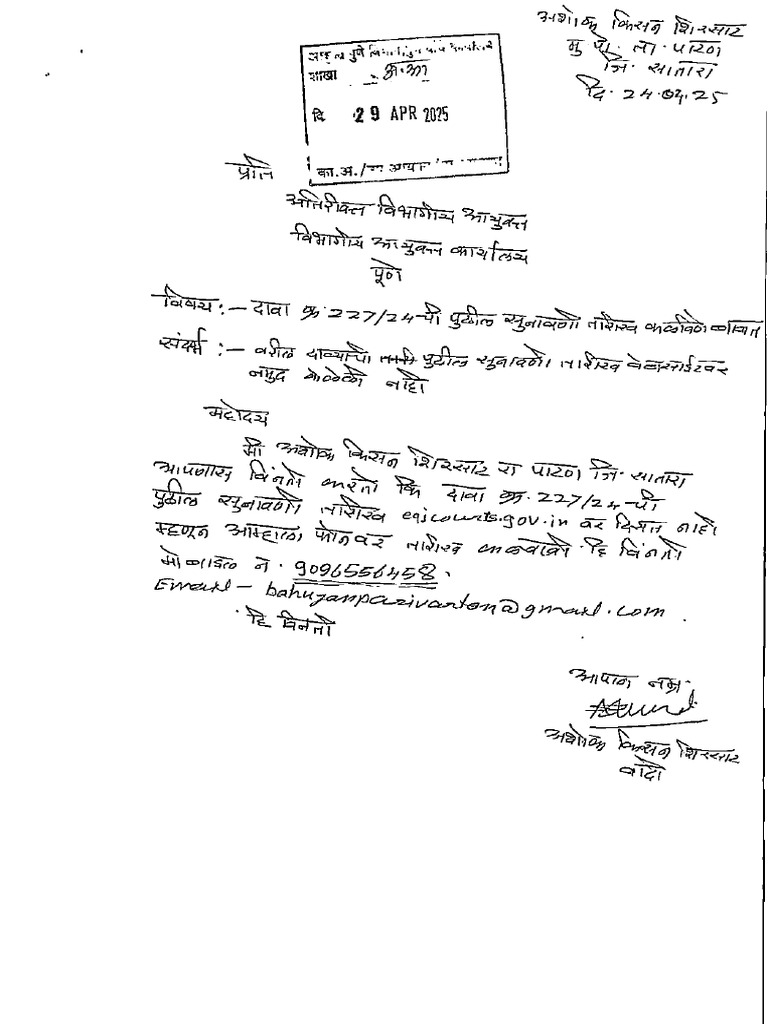 अशोक किसन शिरसाट
मु. पो. ता. पाटण
जि. सातारा
दि. 24.04.25
शाखा अ.का
दि 29 APR 2025
का.अ./
प्रति
अतिरीक्त विभागीय आयुक्त
विभागीय आयुक्त कार्यालय
पूणे
विषय :- दावा क्र. 227/24-ची पुढील सुनावणी तारीख कळविणे बाबत
संदर्भ :- वरील दाव्याची पुढील सुनावणी तारीख वेबसाईटवर
नमुद केलेली नाही
महोदय
मी अशोक किसन शिरसाट रा पाटण जि. सातारा
आपणास विनंती करतो कि दावा क्र. 227/24-ची
पुढील सुनावणी तारीख eqjcourts.gov.in वर दिसत नाही
म्हणून आम्हाला फोनवर तारीख कळवावी हि विनंती
मोबाइल न. 9096556458.
Email - bahujanparivartan@gmail.com
हि विनंती
आपला नम्र
अशोक किसन शिरसाट
वादी